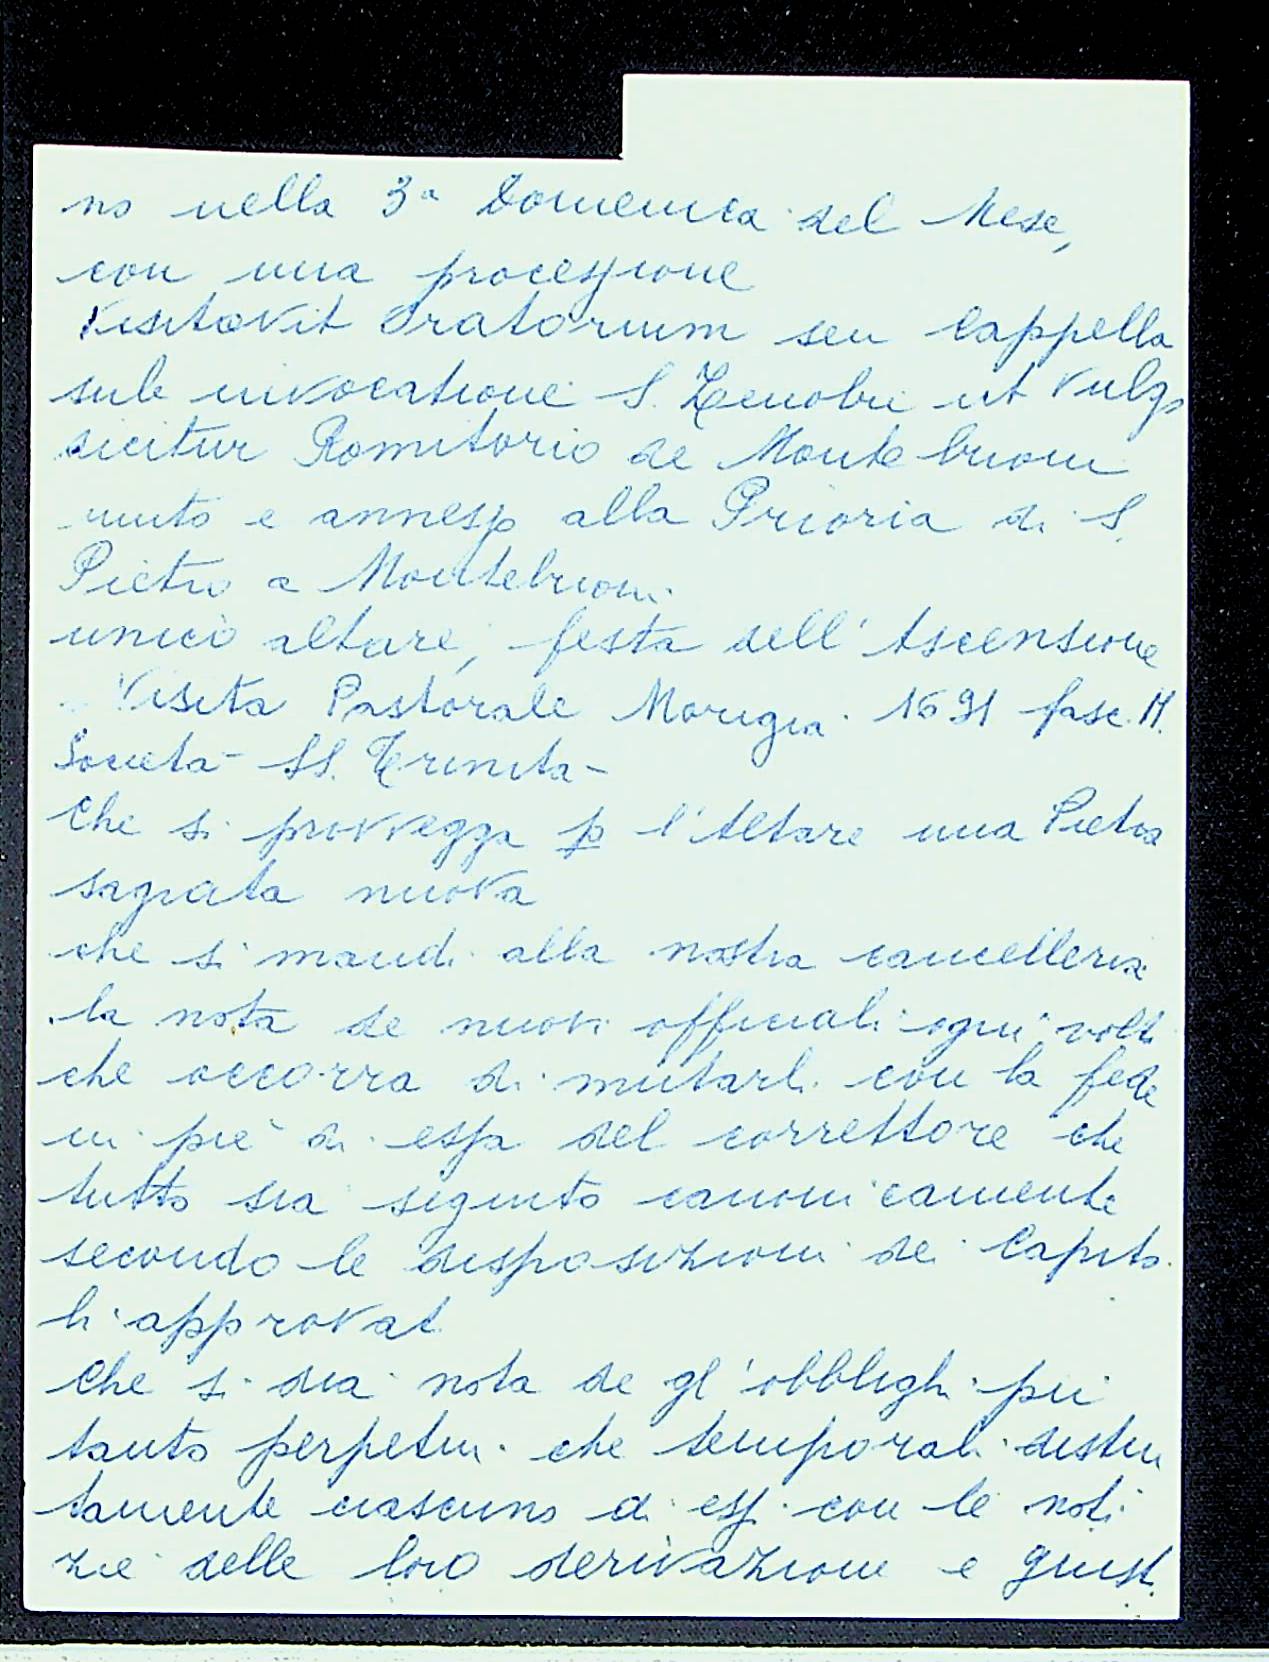 no nella 3ª Domenica del Mese,
con una processione
Visitavit Oratorium seu Cappella
sub invocatione S. Zenobii ut Vulgo
dicitur Romitorio de Monte buoni
unito e annesso alla Prioria di S.
Pietro a Montebuoni
unico altare, festa dell'Ascensione
Visita Pastorale Morigia 1691 fasc. 11.
Società SS. Trinita-
Che si provvegga p l'Altare una Pietra
sagrata nuova
che si mandi alla nostra cancelleria
la nota de nuovi officiali ogni volt
che occorra di mutarli con la fede
in piè di essa del correttore che
tutto sia seguito canonicamente
secondo le disposizioni dei Capito
li approvat
Che si dia nota de gl'obblighi pii
tanto perpetui che temporali distin
tamente ciascuno di essi con le noti
zie delle loro derivazione e giust.